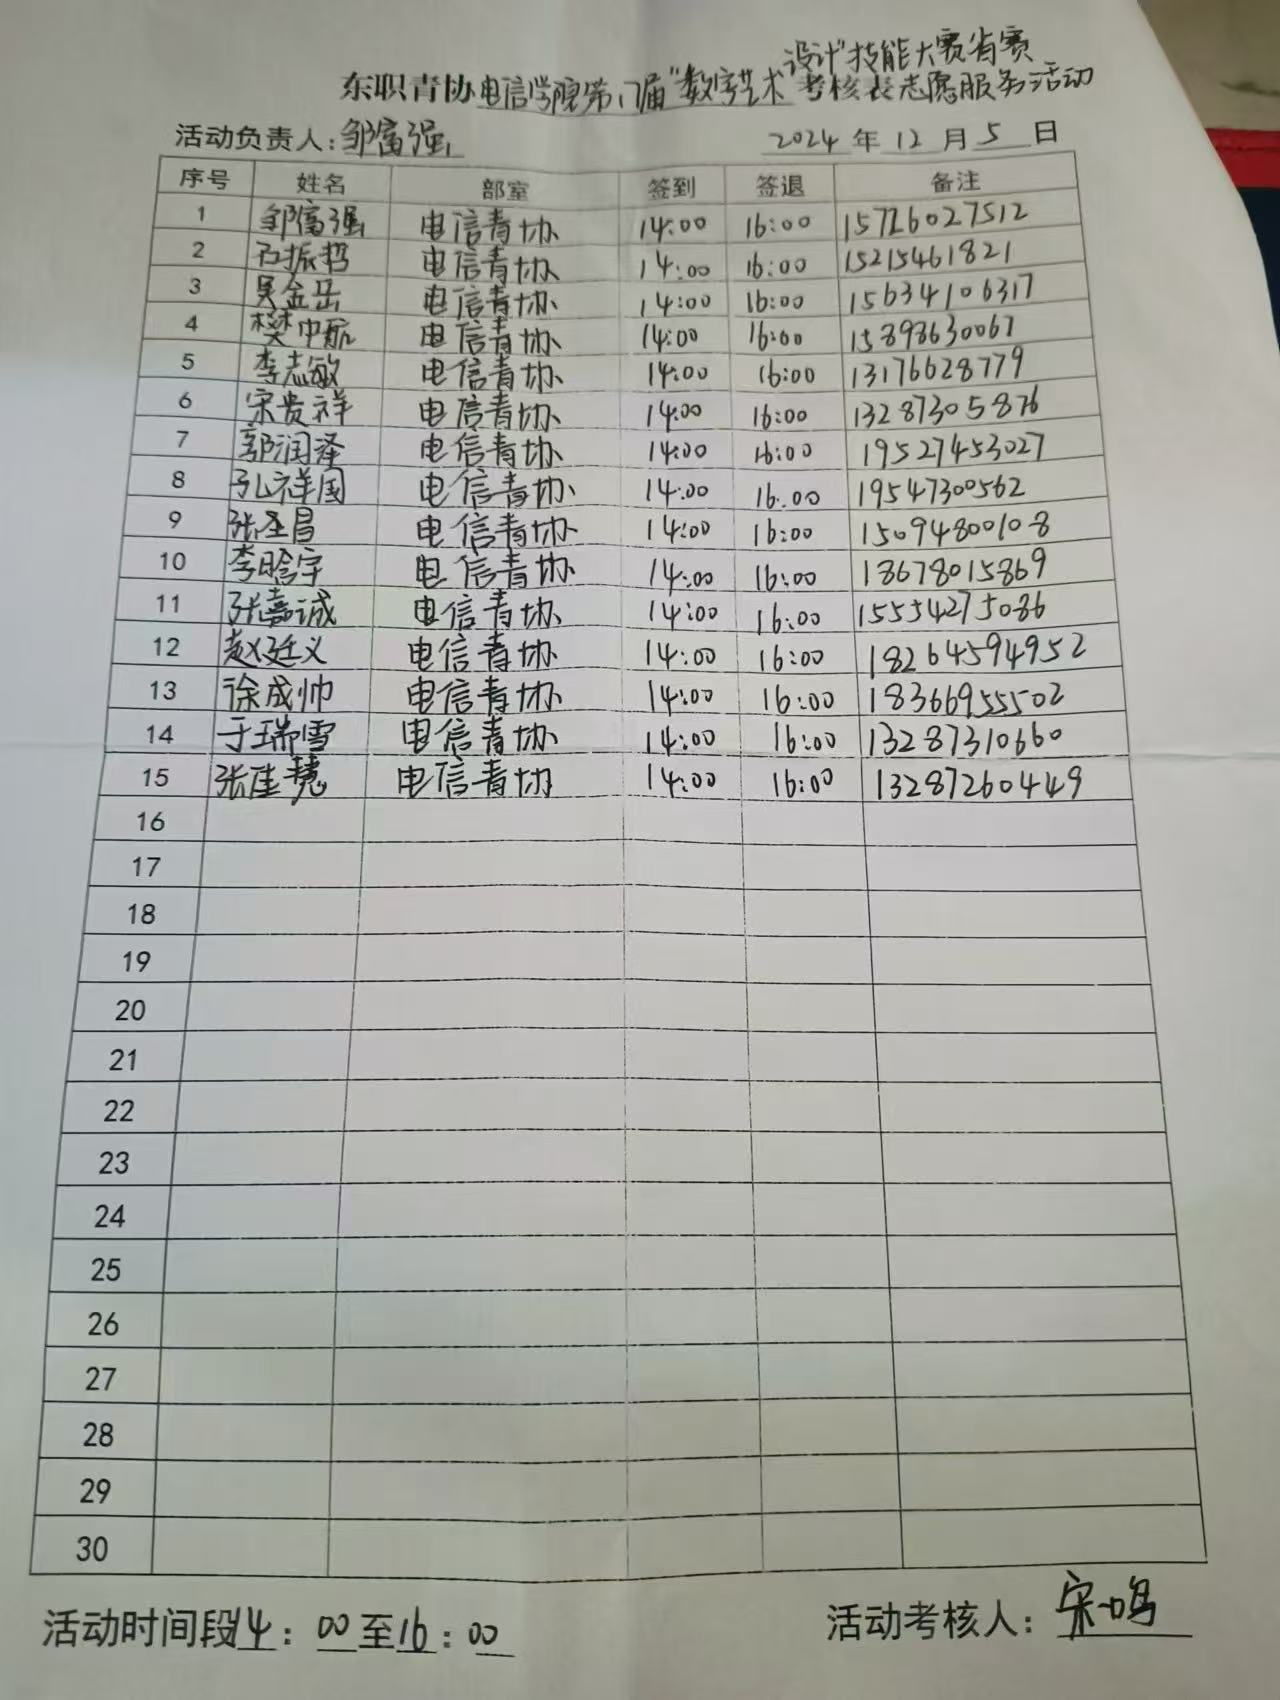 设计"技能大赛省赛
东职青协电信学院第17届"数字艺术考核表志愿服务活动
活动负责人:邹富强 2024年12月5日
序号 姓名 部室 签到 签退 备注
1 邹富强 电信青协 14:00 16:00 15726027512
2 石振哲 电信青协 14:00 16:00 15215461821
3 吴金岳 电信青协 14:00 16:00 15634106317
4 樊中航 电信青协 14:00 16:00 15898630067
5 李志敏 电信青协 14:00 16:00 13176628779
6 宋贵祥 电信青协 14:00 16:00 13287305876
7 郭润泽 电信青协 14:00 16:00 19527453027
8 孔祥国 电信青协 14:00 16:00 19547300562
9 张圣昌 电信青协 14:00 16:00 15094800108
10 李晗宇 电信青协 14:00 16:00 18678015869
11 张嘉诚 电信青协 14:00 16:00 15554275086
12 赵廷义 电信青协 14:00 16:00 18264594952
13 徐成帅 电信青协 14:00 16:00 18366955502
14 于瑞雪 电信青协 14:00 16:00 13287310660
15 张佳慧 电信青协 14:00 16:00 13287260449
16
17
18
19
20
21
22
23
24
25
26
27
28
29
30
活动时间段14:00至16:00 活动考核人:宋一鸣